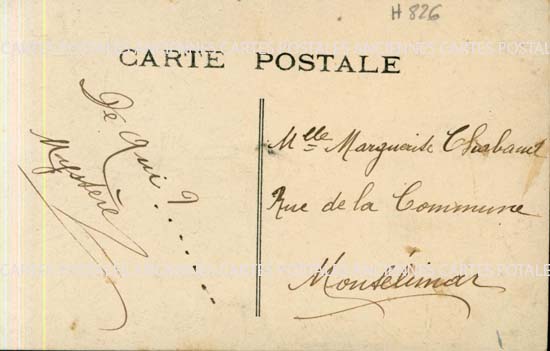 H 826
CARTES POSTALES ANCIENNES CARTES POSTALES ANCIENNES CARTES POSTALE
CARTE POSTALE
De Qui ?......
Mystère
Mlle Marguerite Chabaud
Rue de la Commune
Montélimar
CARTES POSTALES ANCIENNES CARTES POSTALES ANCIENNES CARTES POSTALE